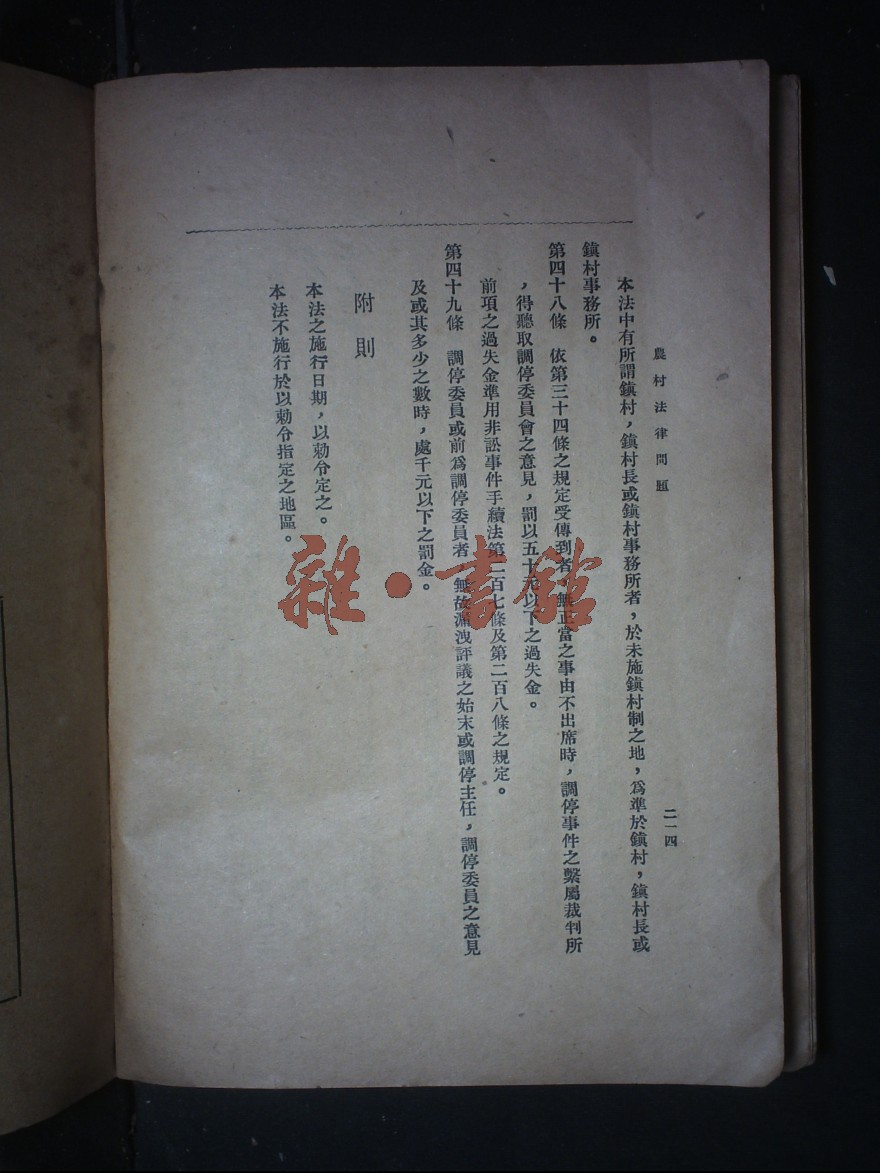 農村法律問題
二一四
本法中有所謂鎭村，鎭村長或鎭村事務所者，於未施鎭村制之地，爲準於鎭村，鎭村長或
鎭村事務所。
第四十八條　依第三十四條之規定受傳到者，無正當之事由不出席時，調停事件之繫屬裁判所
，得聽取調停委員會之意見，罰以五十元以下之過失金。
前項之過失金準用非訟事件手續法第二百七條及第二百八條之規定。
第四十九條　調停委員或前爲調停委員者，無故漏洩評議之始末或調停主任，調停委員之意見
及或其多少之數時，處千元以下之罰金。
附則
本法之施行日期，以勅令定之。
本法不施行於以勅令指定之地區。
雜·書館